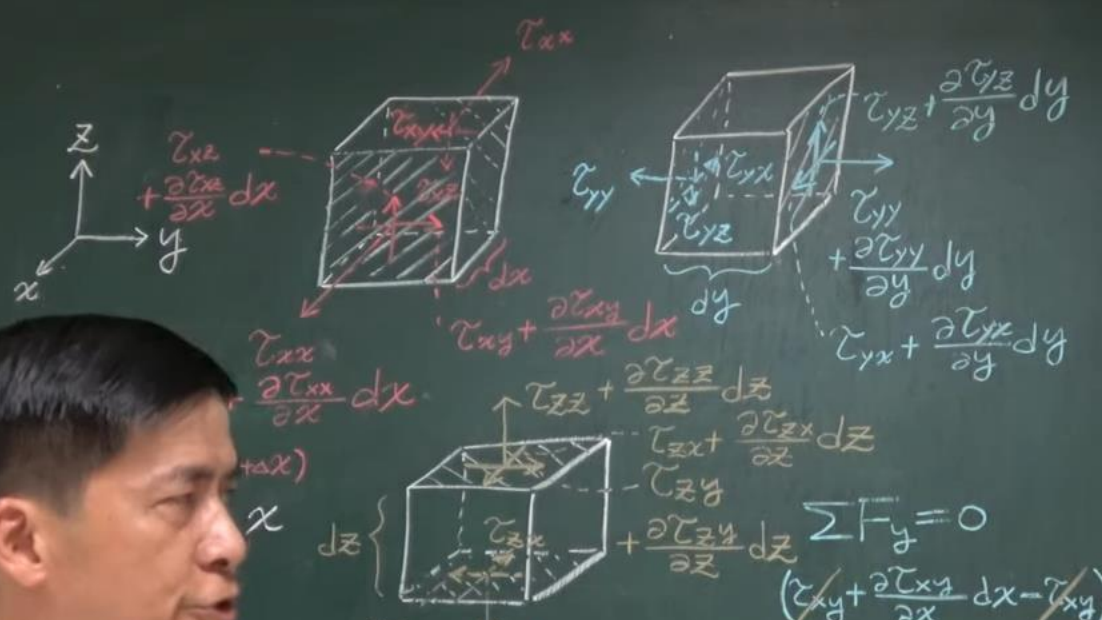 z
y
x
τxx
τxz
+ ∂τxz/∂x dx
τxy
τxz
dx
τxy + ∂τxy/∂x dx
τxx
+ ∂τxx/∂x dx
+Δx)
x
τyy
τyx
τyz
dy
τyz + ∂τyz/∂y dy
τyy
+ ∂τyy/∂y dy
τyx + ∂τyx/∂y dy
τzz + ∂τzz/∂z dz
τzx + ∂τzx/∂z dz
τzy
+ ∂τzy/∂z dz
dz
τzx
ΣFy = 0
(τxy + ∂τxy/∂x dx − τxy)